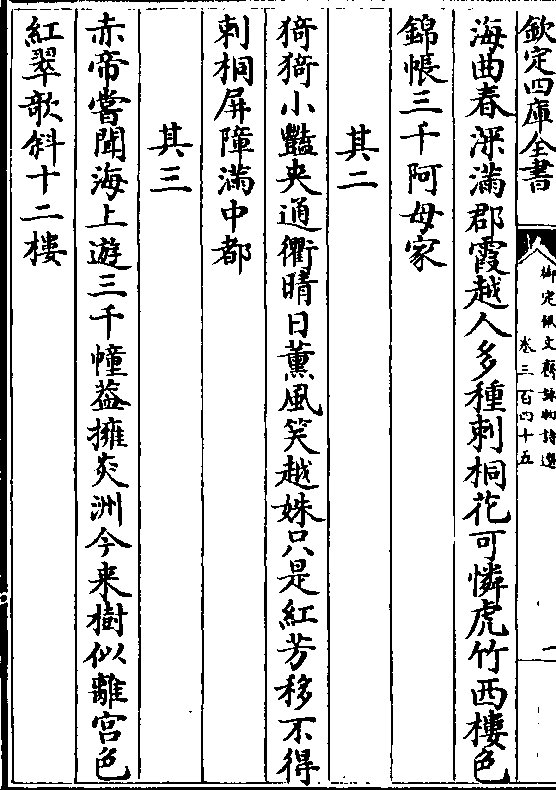 欽定四庫全書
御定佩文齋詠物詩選
卷三百四十五
海曲春深滿郡霞越人多種刺桐花可憐虎竹西樓色
錦帳三千阿母家
其二
猗猗小豔夾通衢晴日薰風笑越姝只是紅芳移不得
刺桐屏障滿中都
其三
赤帝嘗聞海上遊三千幢葢擁炎洲今来樹似離宮色
紅翠欹斜十二樓